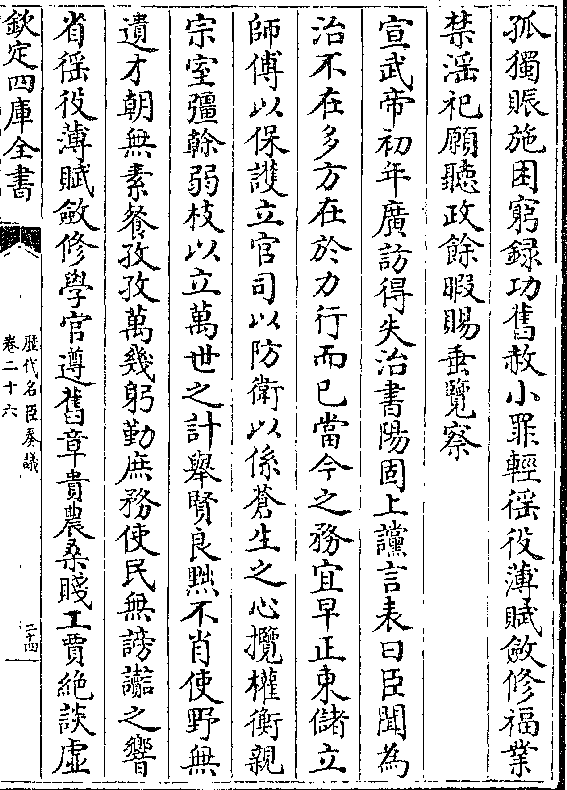 孤獨賑施困窮録功舊赦小罪輕徭役薄賦斂修福業
禁淫祀願聽政餘暇賜垂覽察
宣武帝初年廣訪得失治書陽固上讜言表曰臣聞為
治不在多方在於力行而已當今之務宜早正東儲立
師傅以保護立官司以防衛以係蒼生之心攬權衡親
宗室彊榦弱枝以立萬世之計舉賢良黜不肖使野無
遺才朝無素餐孜孜萬幾躬勤庶務使民無謗讟之響
省徭役薄賦斂修學官遵舊章貴農桑賤工賈絶談虚
欽定四庫全書
歷代名臣奏議
卷二十六
二十四